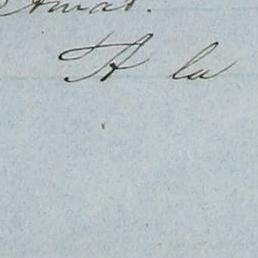 Amat.
A la